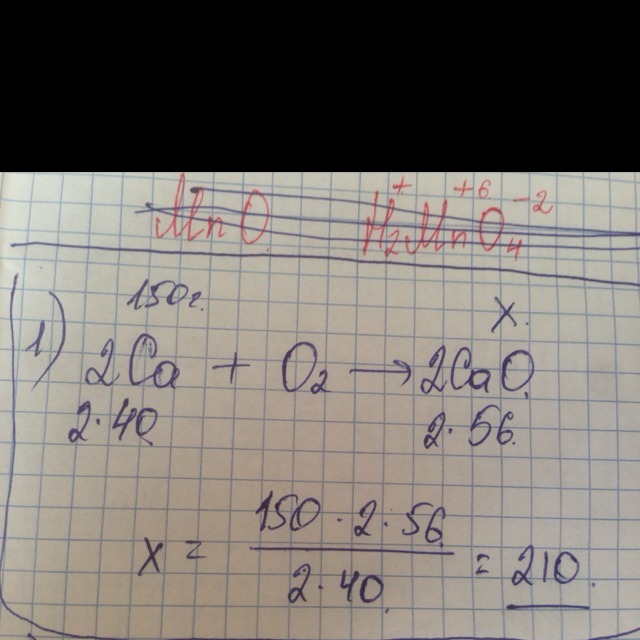 MnO H₂⁺Mn⁺⁶O₄⁻²
150г. x.
1) 2Ca + O₂ → 2CaO
2·40 2·56
x = 150·2·56 / 2·40 = 210.